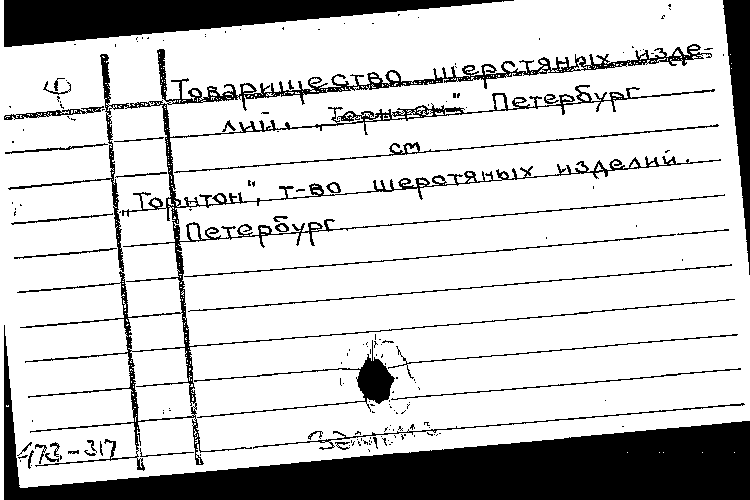 Ф
Товарищество шерстяных изде-
лий. „Торнтон" Петербург
см
„Торнтон", т-во шерстяных изделий.
Петербург
473-317